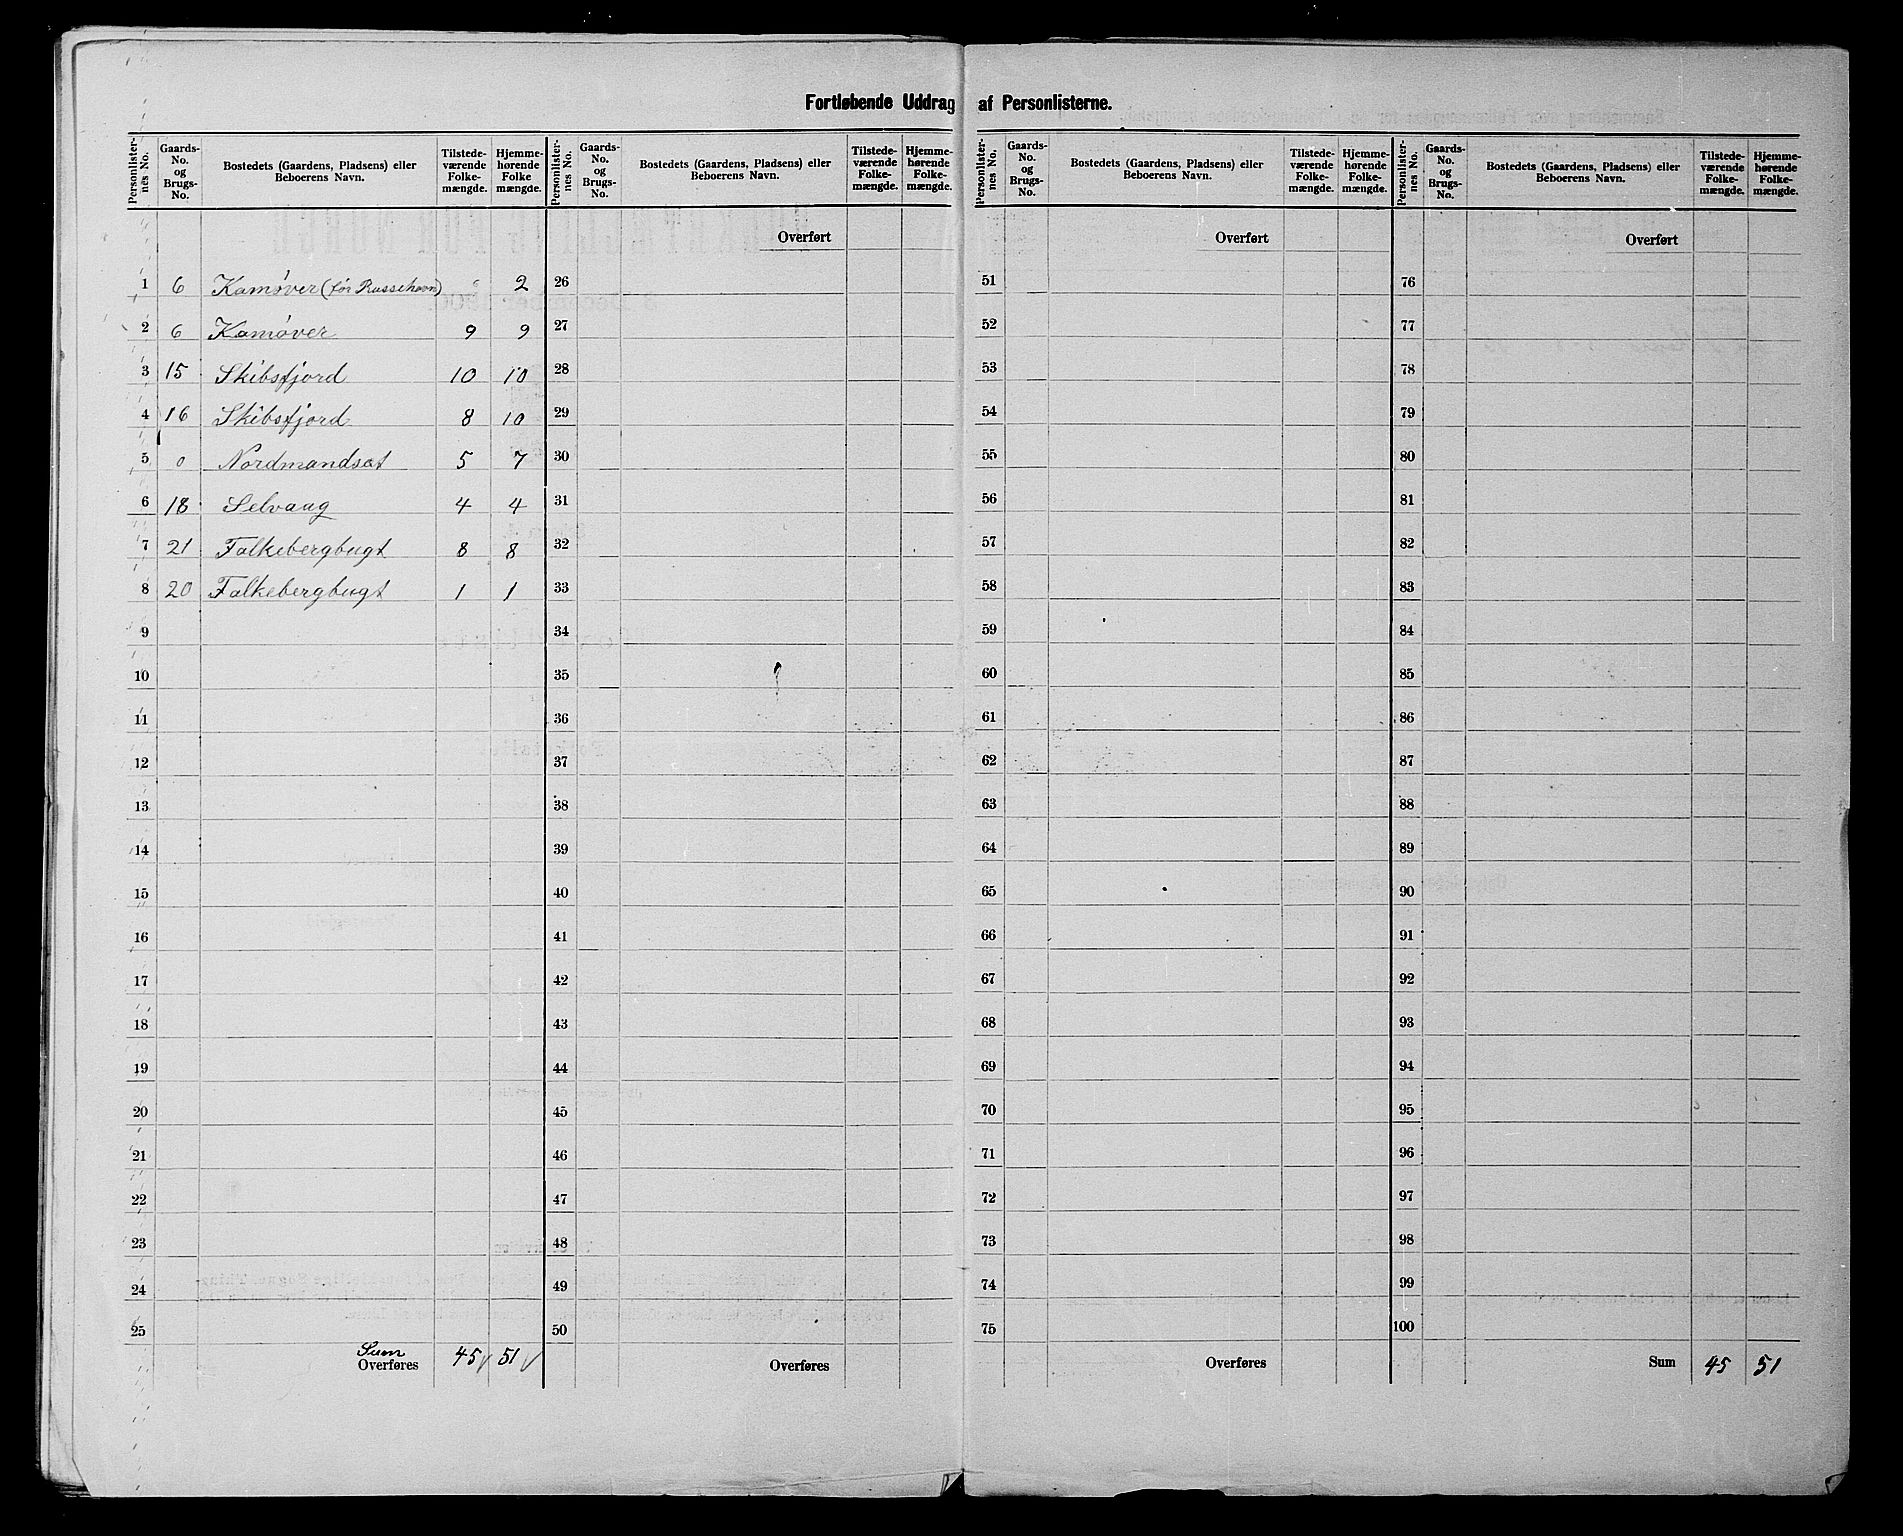 Fortløbende Uddrag af Personlisterne.
Personlister-nes No. | Gaards-No. og Brugs-No. | Bostedets (Gaardens, Pladsens) eller Beboerens Navn. | Tilstede-værende Folke-mængde. | Hjemme-hørende Folke mængde. | Personlister-nes No. | Gaards-No. og Brugs-No. | Bostedets (Gaardens, Pladsens) eller Beboerens Navn. | Tilstede-værende Folke-mængde. | Hjemme-hørende Folke-mængde. | Personlister-nes No. | Gaards-No. og Brugs-No. | Bostedets (Gaardens, Pladsens) eller Beboerens Navn. | Tilstede-værende Folke-mængde. | Hjemme-hørende Folke-mængde. | Personlister-nes No. | Gaards-No. og Brugs-No. | Bostedets (Gaardens, Pladsens) eller Beboerens Navn. | Tilstede-værende Folke-mængde. | Hjemme-hørende Folke-mængde.
Overført Overført Overført
1 6 Kamøver (før Russehavn) 2 26 51 76
2 6 Kamøver 9 9 27 52 77
3 15 Skibsfjord 10 10 28 53 78
4 16 Skibsfjord 8 10 29 54 79
5 0 Nordmandsæt 5 7 30 55 80
6 18 Selvaag 4 4 31 56 81
7 21 Falkebergbugt 8 8 32 57 82
8 20 Falkebergbugt 1 1 33 58 83
9 34 59 84
10 35 60 85
11 36 61 86
12 37 62 87
13 38 63 88
14 39 64 89
15 40 65 90
16 41 66 91
17 42 67 92
18 43 68 93
19 44 69 94
20 45 70 95
21 46 71 96
22 47 72 97
23 48 73 98
24 49 74 99
25 50 75 100
Sum
Overføres 45 51 Overføres Overføres Sum 45 51